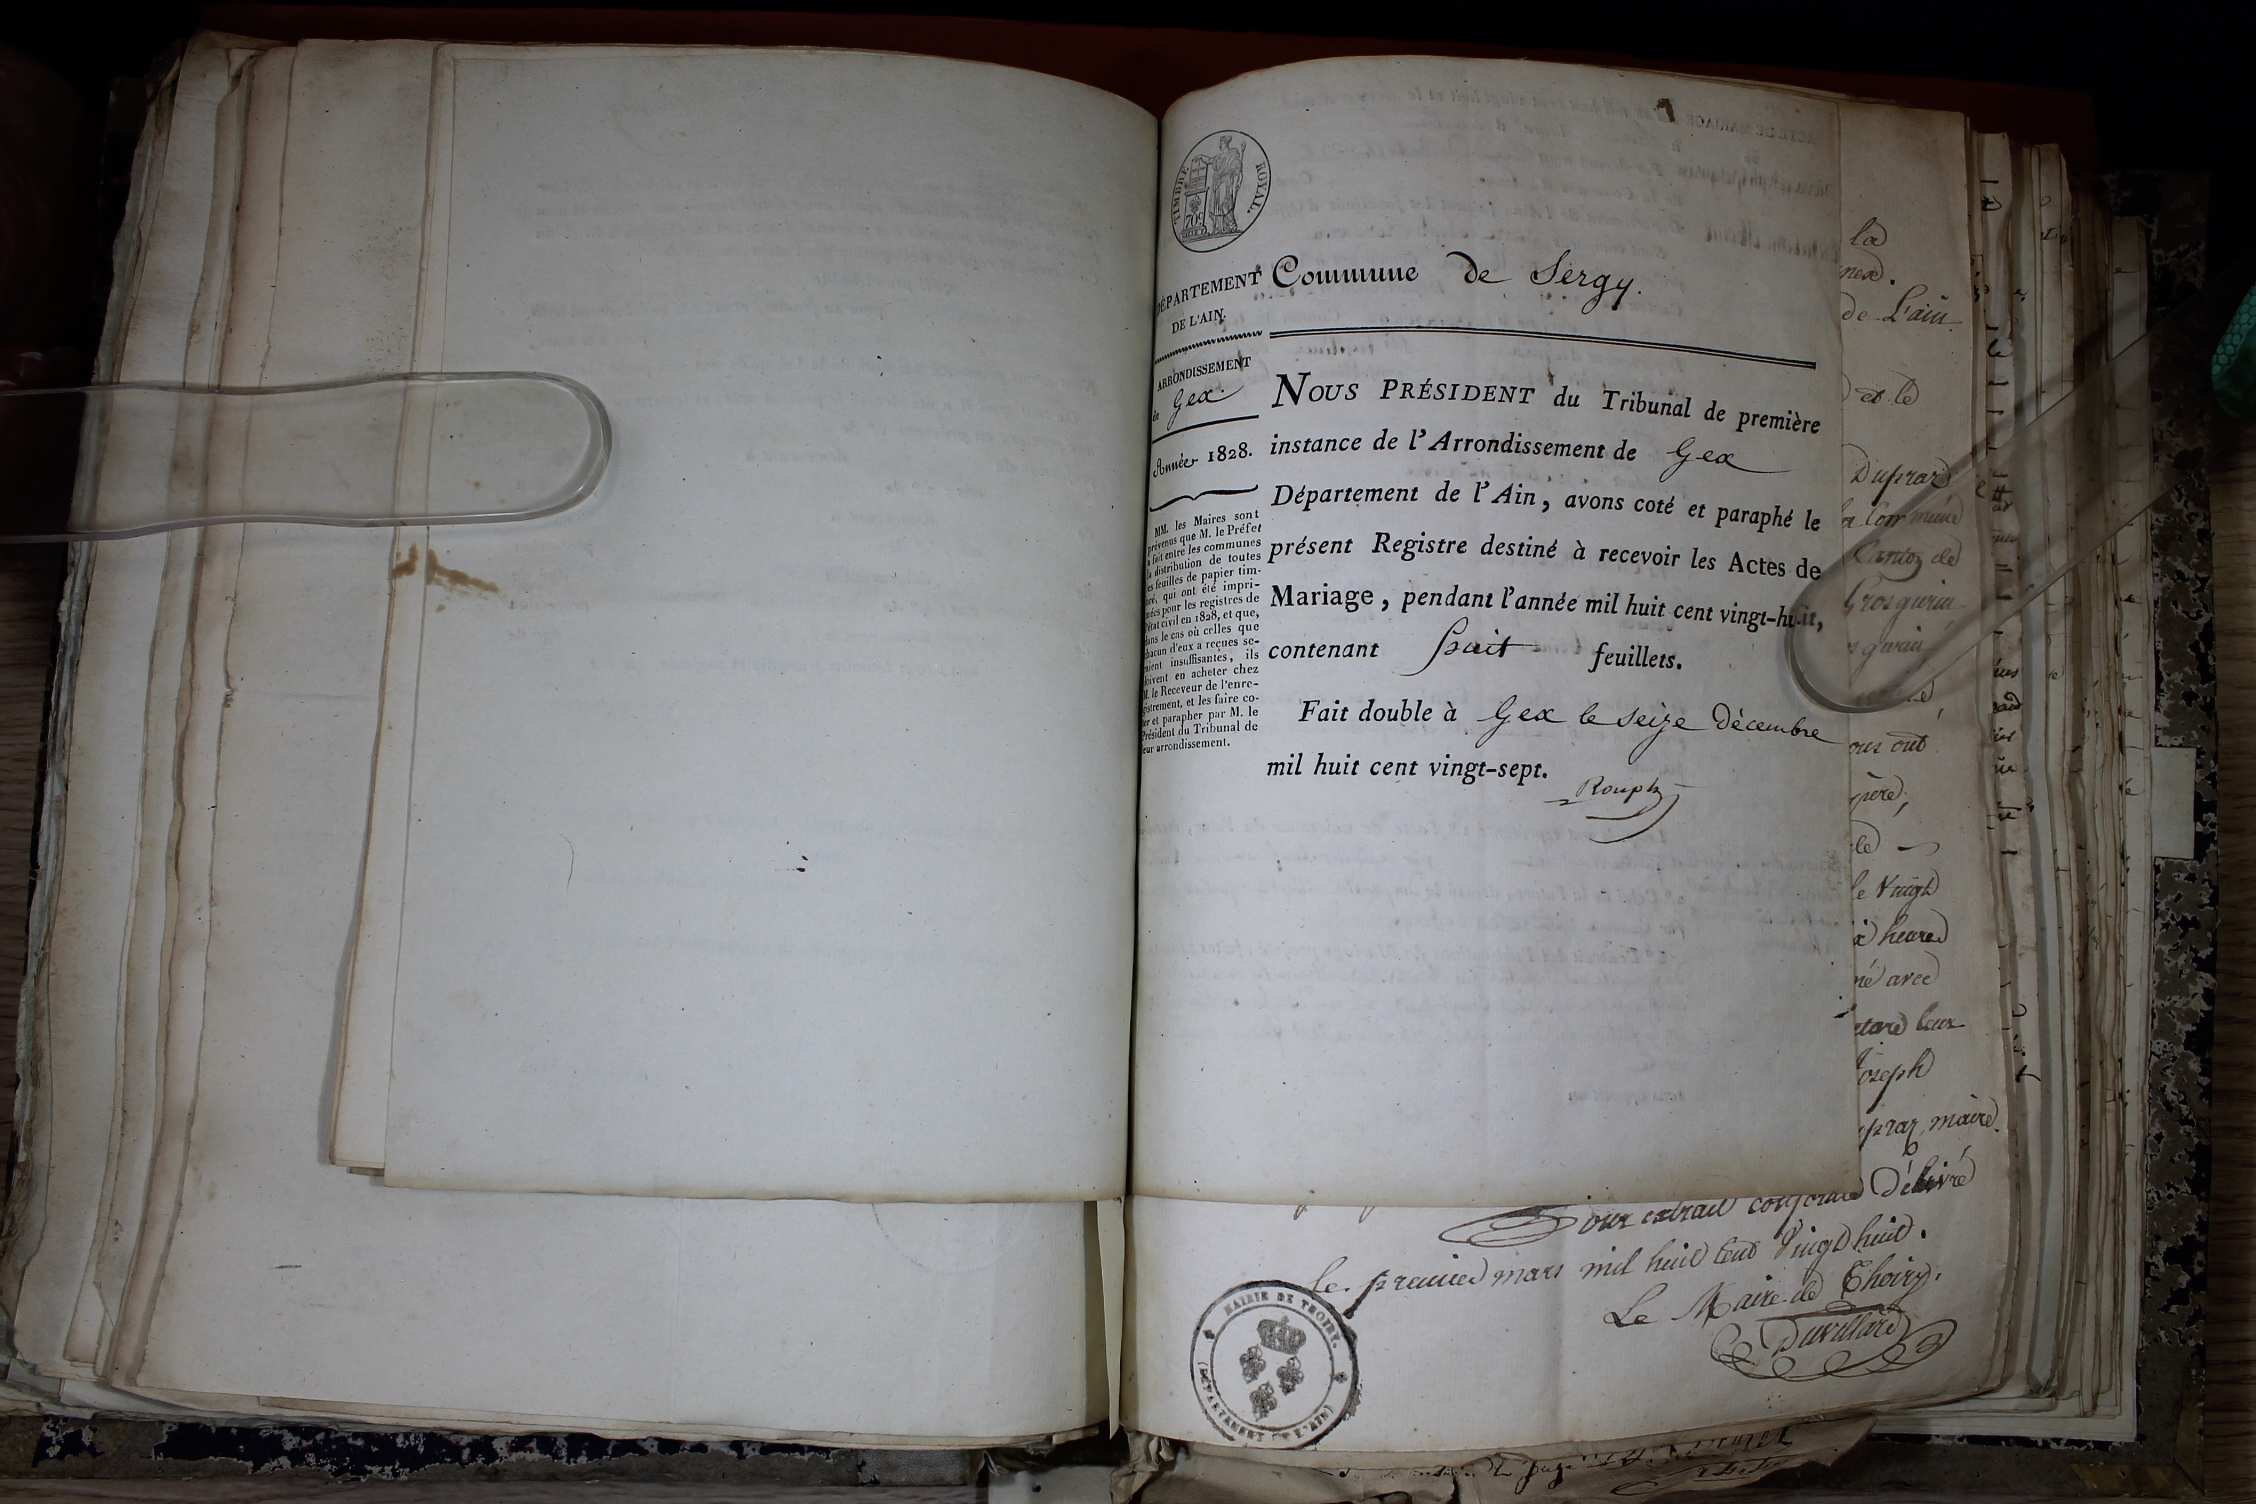 TIMBRE ROYAL.
70c
DÉPARTEMENT
DE L'AIN.
ARRONDISSEMENT
de Gex.
Année 1828.
MM. les Maires sont
prévenus que M. le Préfet
a fait entre les communes
la distribution de toutes
les feuilles de papier tim-
bré, qui ont été impri-
mées pour les registres de
l'état civil en 1828, et que,
dans le cas où celles que
chacun d'eux a reçues se-
raient insuffisantes, ils
doivent en acheter chez
M. le Receveur de l'enre-
gistrement, et les faire co-
ter et parapher par M. le
Président du Tribunal de
leur arrondissement.
Commune de Sergy.
NOUS PRÉSIDENT du Tribunal de première
instance de l'Arrondissement de Gex
Département de l'Ain, avons coté et paraphé le
présent Registre destiné à recevoir les Actes de
Mariage, pendant l'année mil huit cent vingt-huit,
contenant huit feuillets.
Fait double à Gex le seize Décembre
mil huit cent vingt-sept.
Rouph
la
de L'ain
et le
Dupraz
Canton de
Grosgurin
ous ont
père,
le
le Vingt
heures
né avec
Joseph
praz, maire.
Pour extrait conforme Délivré
le premier mars mil huit cent Vingt huit.
Le Maire de Thoiry.
Duvillard
MAIRIE DE THOIRY.
(DÉPARTEMENT DE L'AIN)